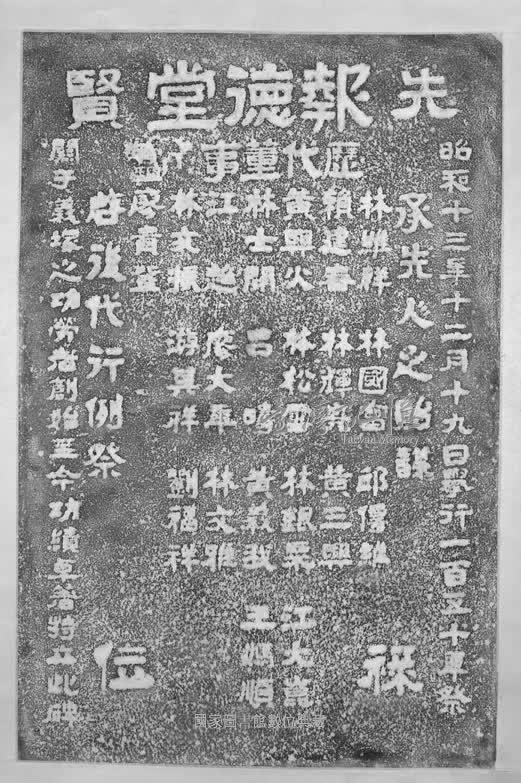 先報德堂賢
昭和十三年十二月十九日舉行一百五十年祭
承先人之貽謀
林維祥 林國 邱 祿
歷 林輝 黃三興
代 黃興火 林松 林銀 江大
董 林士開 呂 黃義 王媽順
事 江 大 林文雅
林文振 游其祥 劉福祥
貴登
啓後代行例祭 位
關于義塚之功勞者創始至今功績卓著特立此碑
國家圖書館數位典藏
Taiwan Memory